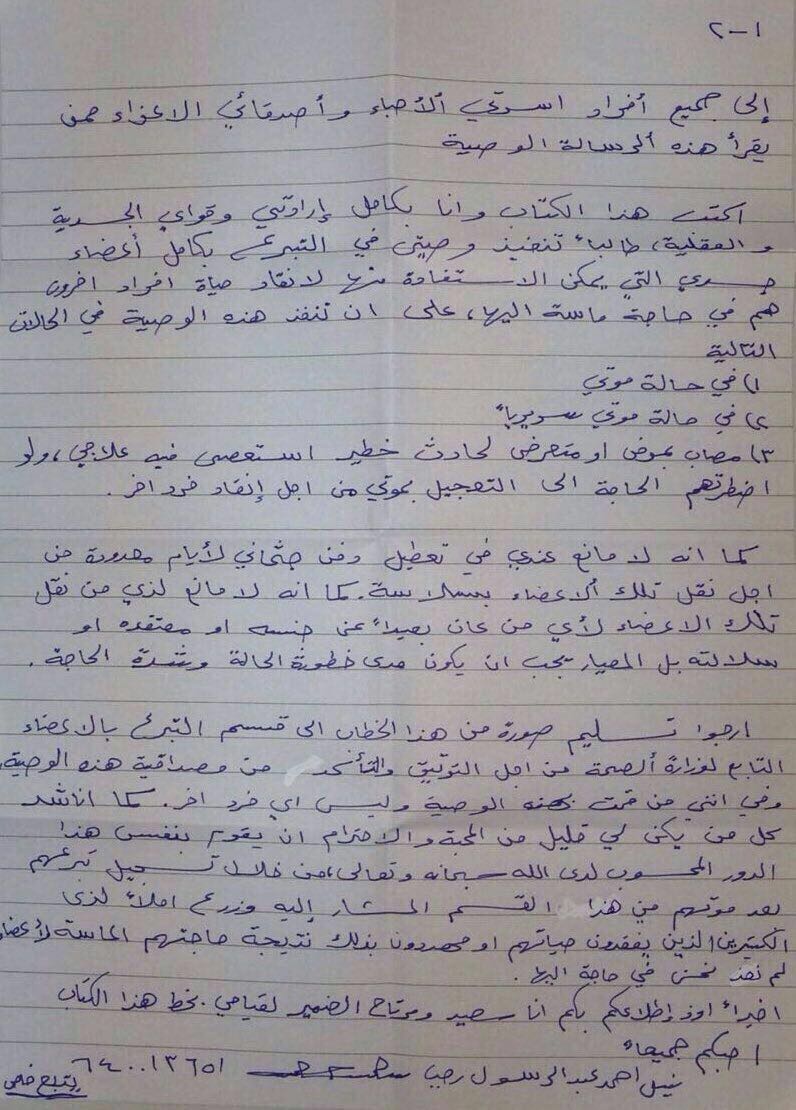 ١-٢
إلى جميع أفراد اسرتي الأحباء وأصدقائي الاعزاء ممن
يقرأ هذه الرسالة الوصية
اكتب هذا الكتاب وانا بكامل إرادتي وقواي الجسدية
والعقلية، طالباً تنفيذ وصيتي في التبرع بكامل أعضاء
جسدي التي يمكن الاستفادة منها لانقاذ حياة افراد اخرون
هم في حاجة ماسة اليها، على ان تنفذ هذه الوصية في الحالات
التالية
١) في حالة موتي
٢) في حالة موتي سريرياً
٣) مصاب بمرض او متعرض لحادث خطير استعصى فيه علاجي، ولو
اضطرتهم الحاجة الى التعجيل بموتي من اجل إنقاذ فرد اخر.
كما انه لا مانع عندي في تعطيل دفن جثماني لأيام معدودة من
اجل نقل تلك الاعضاء بسلاسة. كما انه لا مانع لدي من نقل
تلك الاعضاء لأي من كان بعيداً عن جنسه او معتقده او
سلالته بل المعيار يجب ان يكون مدى خطورة الحالة وشدة الحاجة.
ارجوا تسليم صورة من هذا الخطاب الى قسم التبرع بالاعضاء
التابع لوزارة الصحة من اجل التوثيق والتأكد من مصداقية هذه الوصية
وفي انني من قمت بهذه الوصية وليس اي فرد اخر. كما اناشد
كل من يكن لي قليل من المحبة والاحترام ان يقوم بنفس هذا
الدور المحسوب لدى الله سبحانه وتعالى، من خلال تسجيل تبرعهم
بعد موتهم من هذا القسم المشار إليه وزرع املاً لدى
الكثيرين الذين يفقدون حياتهم او مهددون بذلك نتيجة حاجتهم الماسة لأعضاء
لم نعد نحن في حاجة اليها.
اخيراً اود إطلاعكم بكم انا سعيد ومرتاح الضمير لقيامي بخط هذا الكتاب
احبكم جميعاً
نبيل احمد عبدالرسول رجب ٦٤٠٠١٣٦٥١
يتبع خلفي